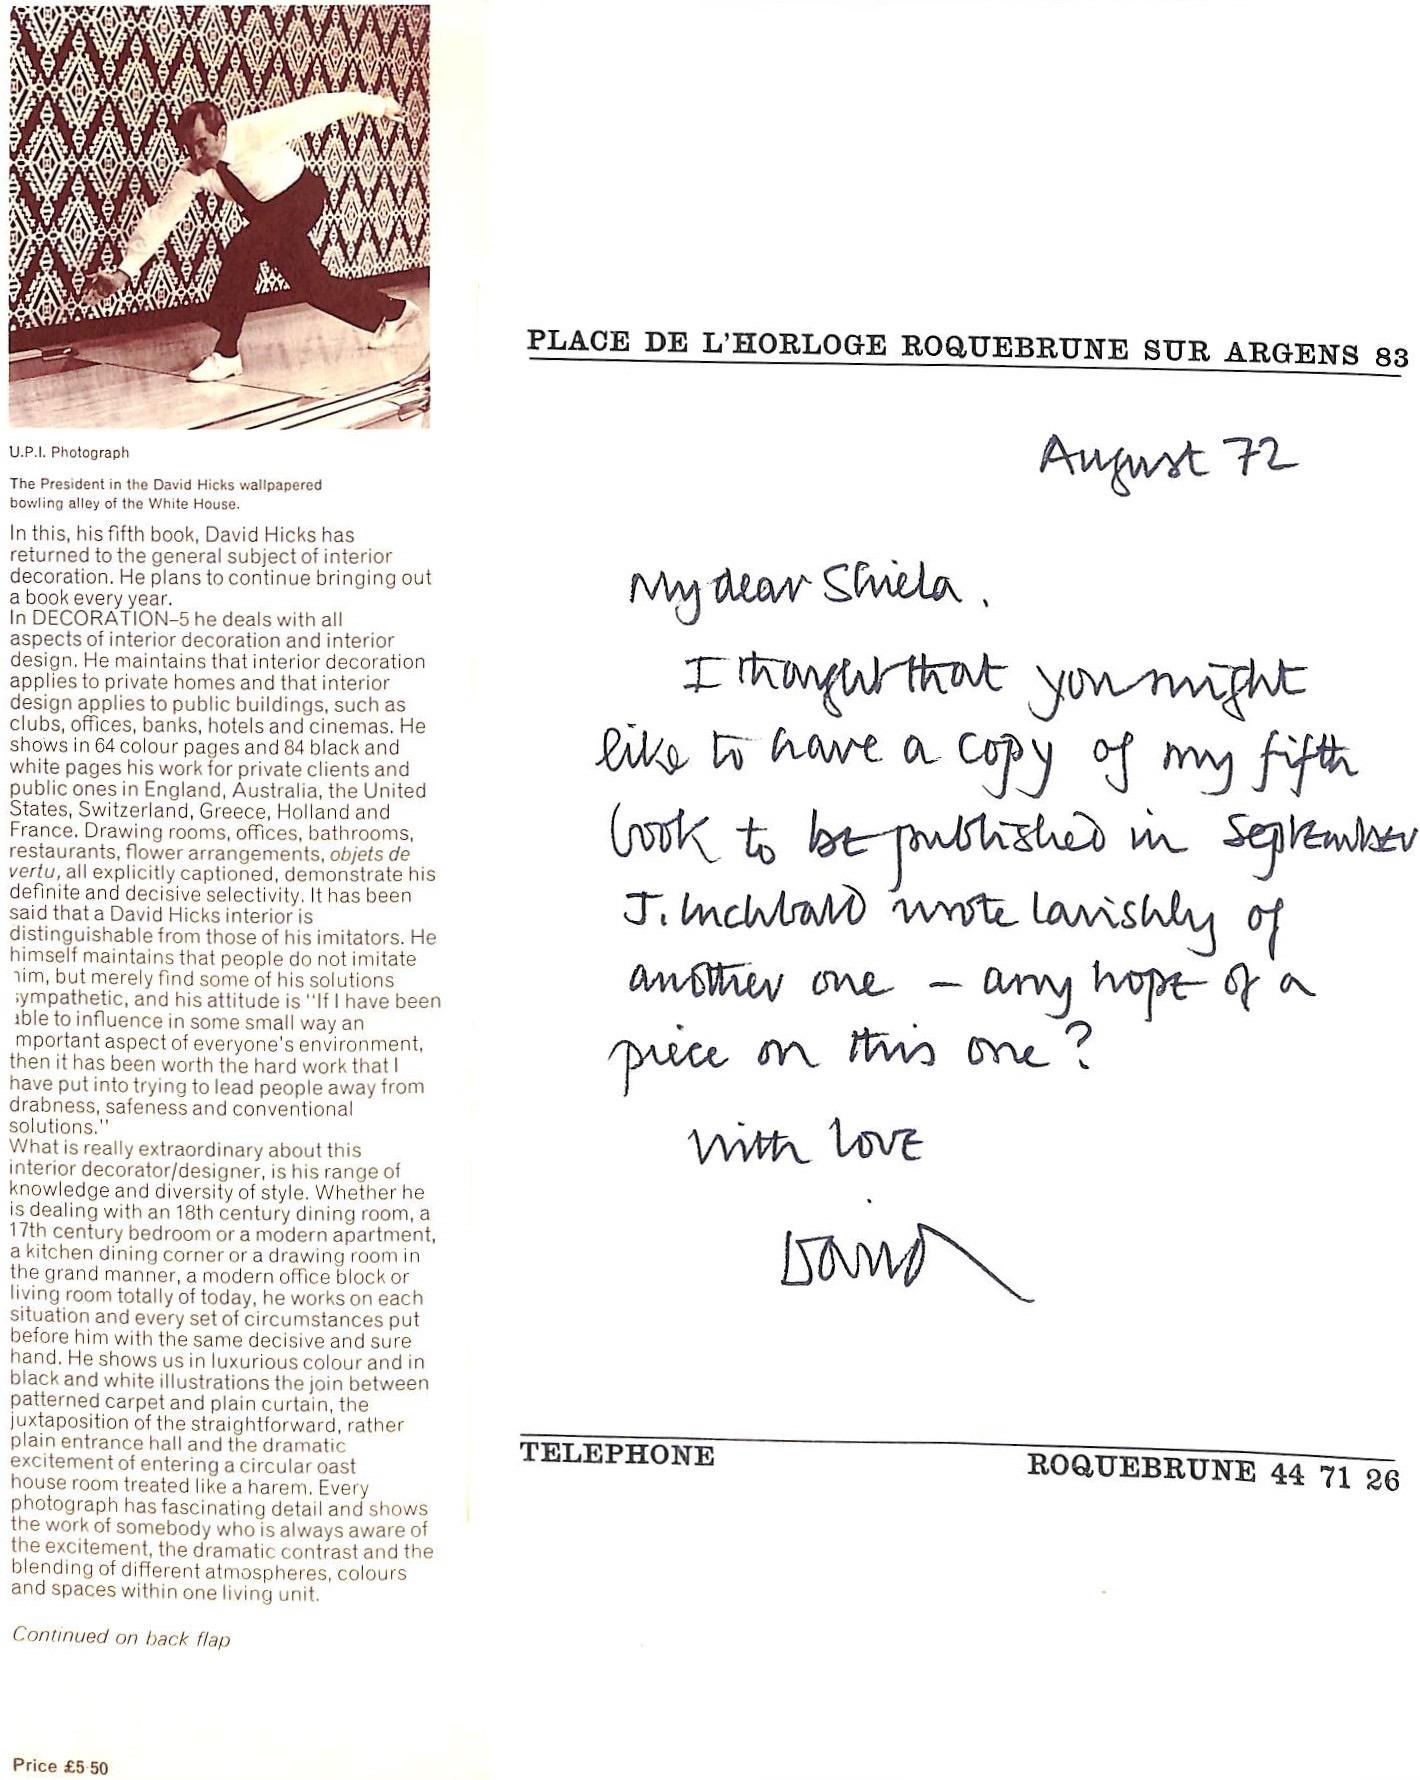 U.P.I. Photograph
The President in the David Hicks wallpapered
bowling alley of the White House.
In this, his fifth book, David Hicks has
returned to the general subject of interior
decoration. He plans to continue bringing out
a book every year.
In DECORATION–5 he deals with all
aspects of interior decoration and interior
design. He maintains that interior decoration
applies to private homes and that interior
design applies to public buildings, such as
clubs, offices, banks, hotels and cinemas. He
shows in 64 colour pages and 84 black and
white pages his work for private clients and
public ones in England, Australia, the United
States, Switzerland, Greece, Holland and
France. Drawing rooms, offices, bathrooms,
restaurants, flower arrangements, objets de
vertu, all explicitly captioned, demonstrate his
definite and decisive selectivity. It has been
said that a David Hicks interior is
distinguishable from those of his imitators. He
himself maintains that people do not imitate
him, but merely find some of his solutions
sympathetic, and his attitude is "If I have been
able to influence in some small way an
mportant aspect of everyone's environment,
then it has been worth the hard work that I
have put into trying to lead people away from
drabness, safeness and conventional
solutions."
What is really extraordinary about this
interior decorator/designer, is his range of
knowledge and diversity of style. Whether he
is dealing with an 18th century dining room, a
17th century bedroom or a modern apartment,
a kitchen dining corner or a drawing room in
the grand manner, a modern office block or
living room totally of today, he works on each
situation and every set of circumstances put
before him with the same decisive and sure
hand. He shows us in luxurious colour and in
black and white illustrations the join between
patterned carpet and plain curtain, the
juxtaposition of the straightforward, rather
plain entrance hall and the dramatic
excitement of entering a circular oast
house room treated like a harem. Every
photograph has fascinating detail and shows
the work of somebody who is always aware of
the excitement, the dramatic contrast and the
blending of different atmospheres, colours
and spaces within one living unit.
Continued on back flap
Price £5·50
PLACE DE L'HORLOGE ROQUEBRUNE SUR ARGENS 83
August 72
My dear Shiela.
I thought that you might
like to have a copy of my fifth
book to be published in September
J. Inchbald wrote lavishly of
another one – any hope of a
piece on this one?
With love
David
TELEPHONE ROQUEBRUNE 44 71 26